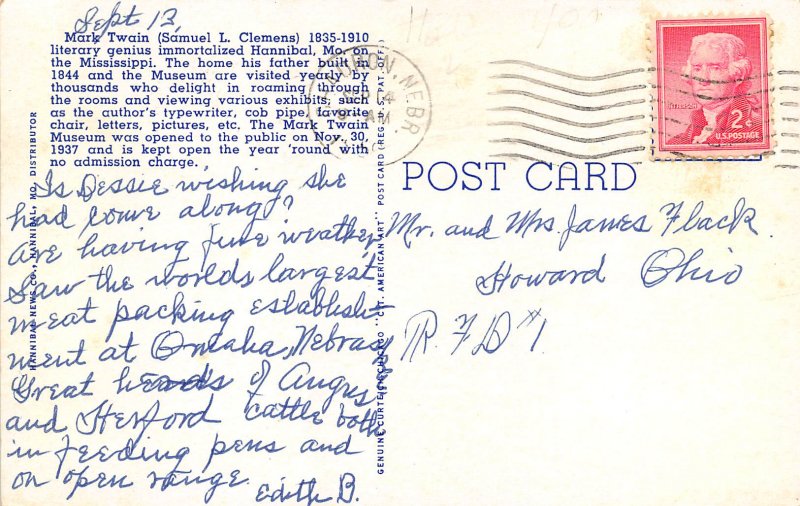 Sept 13,
Mark Twain (Samuel L. Clemens) 1835-1910
literary genius immortalized Hannibal, Mo. on
the Mississippi. The home his father built in
1844 and the Museum are visited yearly by
thousands who delight in roaming through
the rooms and viewing various exhibits, such
as the author's typewriter, cob pipe, favorite
chair, letters, pictures, etc. The Mark Twain
Museum was opened to the public on Nov. 30,
1937 and is kept open the year 'round with
no admission charge.
Is Dessie wishing she
had come along?
Are having fine weather
Saw the worlds largest
meat packing establish-
ment at Omaha, Nebras
Great heards of Angus
and Herford cattle both
in feeding pens and
on open range.
Edith B.
HANNIBAL NEWS CO., HANNIBAL, MO. DISTRIBUTOR
GENUINE CURTEICH-CHICAGO "C.T. AMERICAN ART" POST CARD (REG. U.S. PAT. OFF.)
NEBR
14
AM
2¢
U.S. POSTAGE
POST CARD
Mr. and Mrs. James Flack
Howard Ohio
R. F. D #1